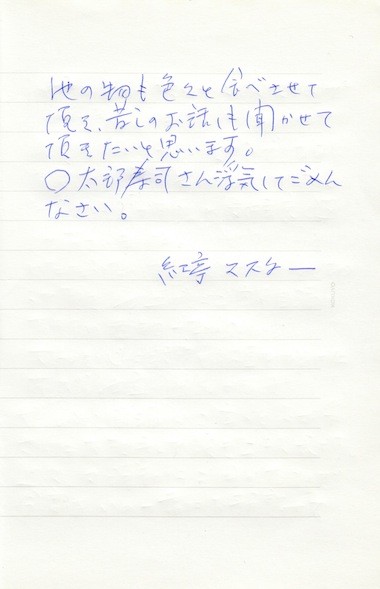 他の物も色々と食べさせて
頂き、昔しのお話しも聞かせて
頂きたいと思います。
○太郎寿司さん浮気してごめん
なさい。
紅亭 マスター